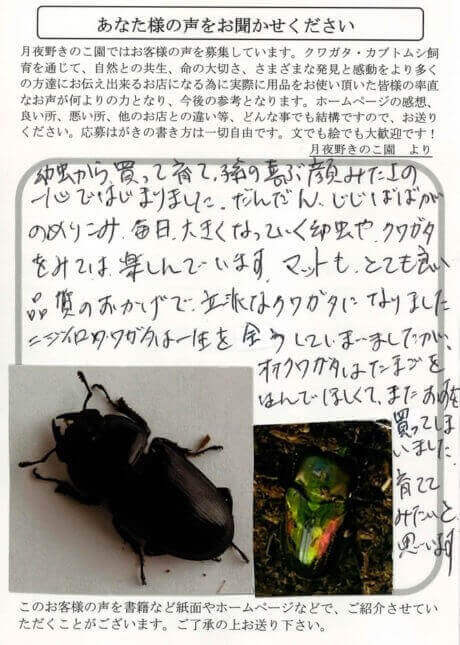 あなた様の声をお聞かせください
月夜野きのこ園ではお客様の声を募集しています。クワガタ・カブトムシ飼
育を通じて、自然との共生、命の大切さ、さまざまな発見と感動をより多く
の方達にお伝え出来るお店になる為に実際に用品をお使い頂いた皆様の率直
なお声が何よりの力となり、今後の参考となります。ホームページの感想、
良い所、悪い所、他のお店との違い等、どんな事でも結構ですので、お送り
ください。応募はがきの書き方は一切自由です。文でも絵でも大歓迎です！
月夜野きのこ園　より
幼虫から買って育て、孫の喜ぶ顔みたさの
一心ではじまりました。だんだん、じじばばが
のめりこみ、毎日、大きくなっていく幼虫や、クワガタ
をみては、楽しんでいます。マットも、とても良い
品質のおかげで、立派なクワガタになりました
ニジイロクワガタは一生を全うしてしまいましたが、
オオクワガタはたまごを
うんでほしくて、また
買ってしま
いました。
育てて
みたいと
思います
このお客様の声を書籍など紙面やホームページなどで、ご紹介させてい
ただくことがございます。ご了承の上お送り下さい。